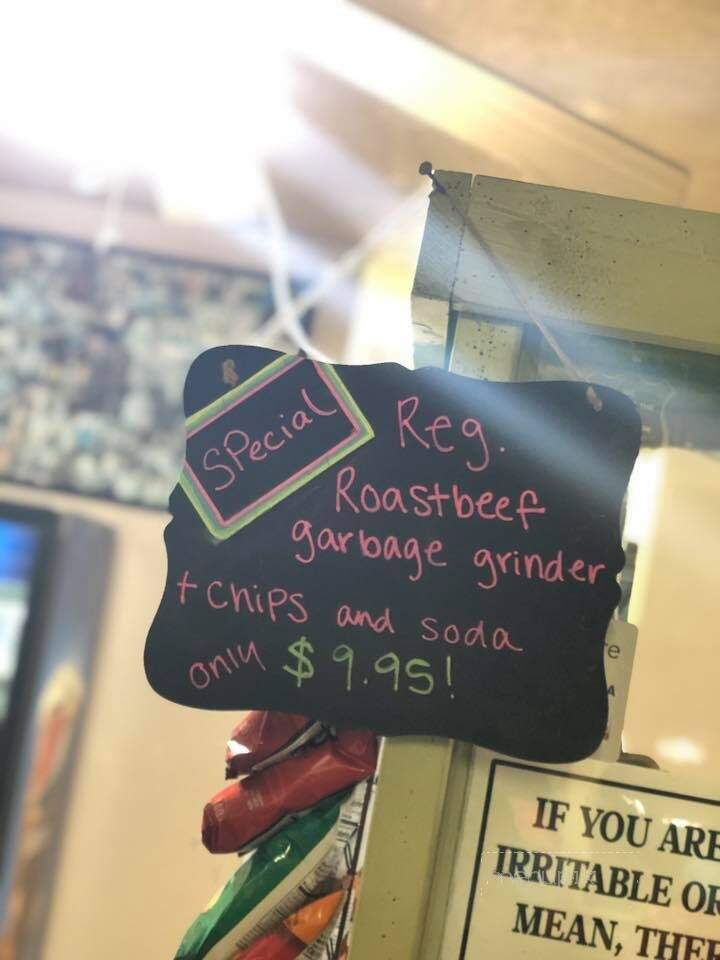 SPecial
Reg.
Roastbeef
garbage grinder
+ chips and soda
only $9.95!
re
A
IF YOU ARE
IRRITABLE OR
MEAN, THE